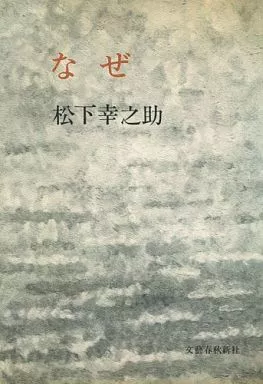 なぜ
松下幸之助
文藝春秋新社